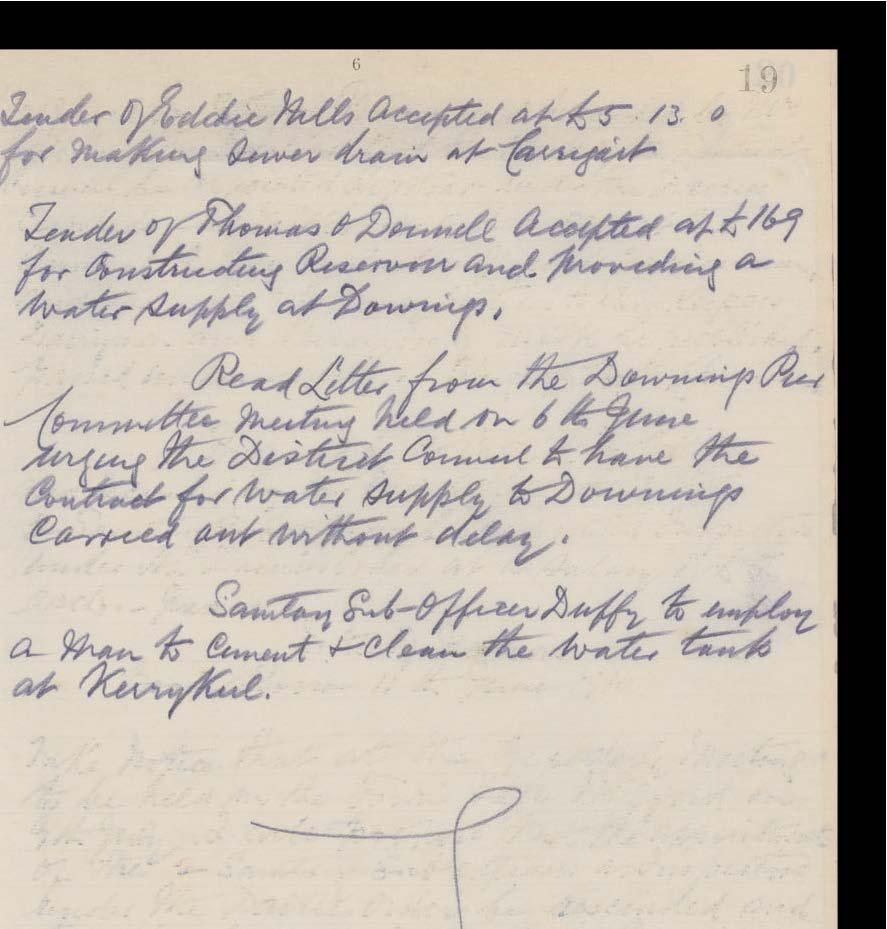 6
19
Tender of Eddie Mills Accepted at £5. 13. 0
for making sewer drain at Carrigart
Tender of Thomas O Donnell Accepted at £169
for Constructing Reservoir and providing a
water supply at Downings.
Read Letter from the Downings Pier
Committee Meeting held on 6th June
urging the District Council to have the
Contract for water supply to Downings
Carried out without delay.
Sanitary Sub-Officer Duffy to employ
a man to Cement & Clean the water tank
at KerryKeel.